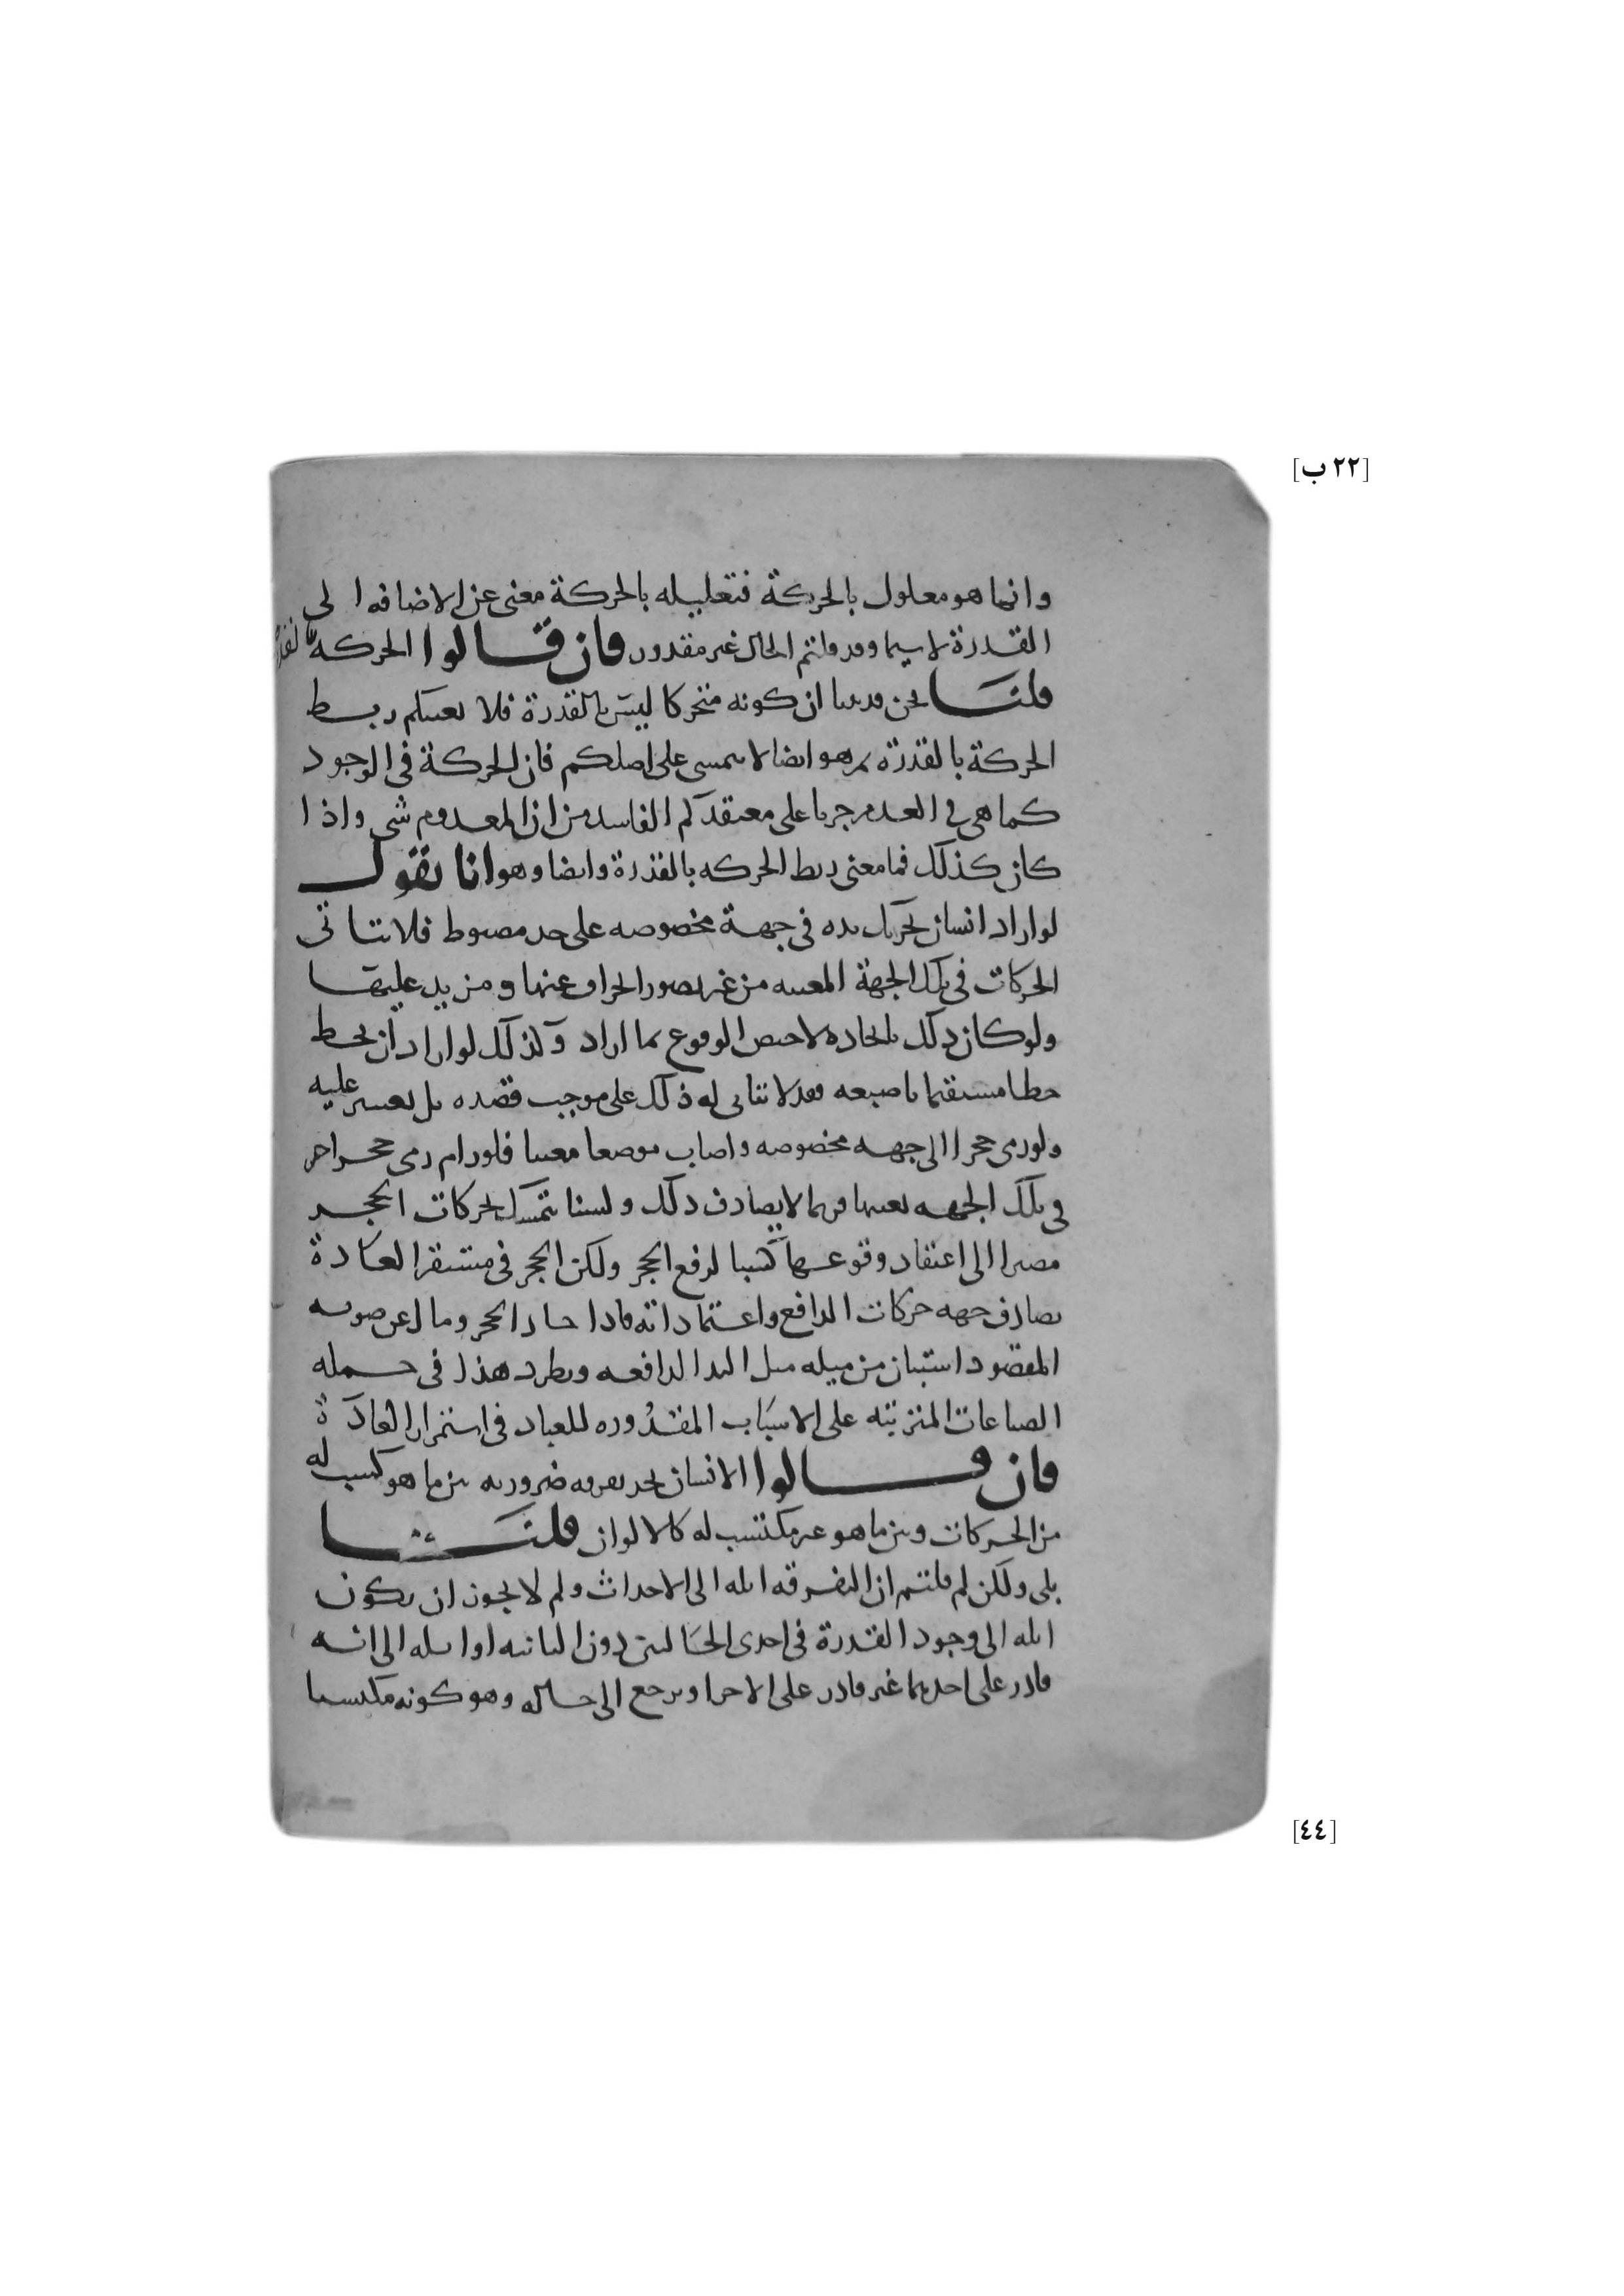 [٢٢ ب]
وانما هو معلول بالحركة فتعليله بالحركة مغنى عن الاضافه الى
القدرة لاسيما وقد قلتم الحال غير مقدور فان قالوا الحركة بالقدرة
قلنا نحن قد بينا ان كونه متحركا ليس بالقدرة فلا يمكنكم ربط
الحركة بالقدرة ثم هو ايضا لا يتمشى على اصلكم فان الحركة فى الوجود
كما هى فى العدم جريا على معتقدكم الفاسد من ان المعدوم شى واذا
كان كذلك فما معنى ربط الحركه بالقدرة وايضا وهو انا نقول
لو اراد انسان تحريك يده فى جهة مخصوصه على حد مضبوط فلا تتاتى
الحركات فى تلك الجهة المعينه من غير تصور انحراف عنها ومزيد عليها
ولو كان ذلك بايجاده لاختص الوقوع بما اراد وكذلك لو اراد ان يخط
خطا مستقيما باصبعه فقد لا يتاتى له ذلك على موجب قصده بل يعسر عليه
ولو رمى حجرا الى جهه مخصوصه واصاب موضعا معينا فلو رام رمى حجر اخر
فى تلك الجهه بعينها فربما لا يصادف ذلك ولسنا نتمسك بحركات الحجر
مصيرا الى اعتقاد وقوعها كسبا لدفع الحجر ولكن الحجر فى مستقر العادة
يصادف جهه حركات الدافع واعتماداته فاذا حاد الحجر ومال عن صوبه
المقصود استبان من ميله ميل اليد الدافعه ويطرد هذا فى جمله
الصناعات المترتبه على الاسباب المقدوره للعباد فى استمرار العادة
فان قالوا الانسان يجد تفرقه ضروريه بين ما هو كسب له
من الحركات وبين ما هو غير مكتسب له كالالوان قلنا
بلى ولكن لم قلتم ان التفرقه ايله الى الاحداث ولم لا يجوز ان يكون
ايله الى وجود القدرة فى احدى الحالتين دون الثانيه او ايله الى انه
قادر على احدهما غير قادر على الاخر او يرجع الى حاله وهو كونه مكتسبا
[٤٤]